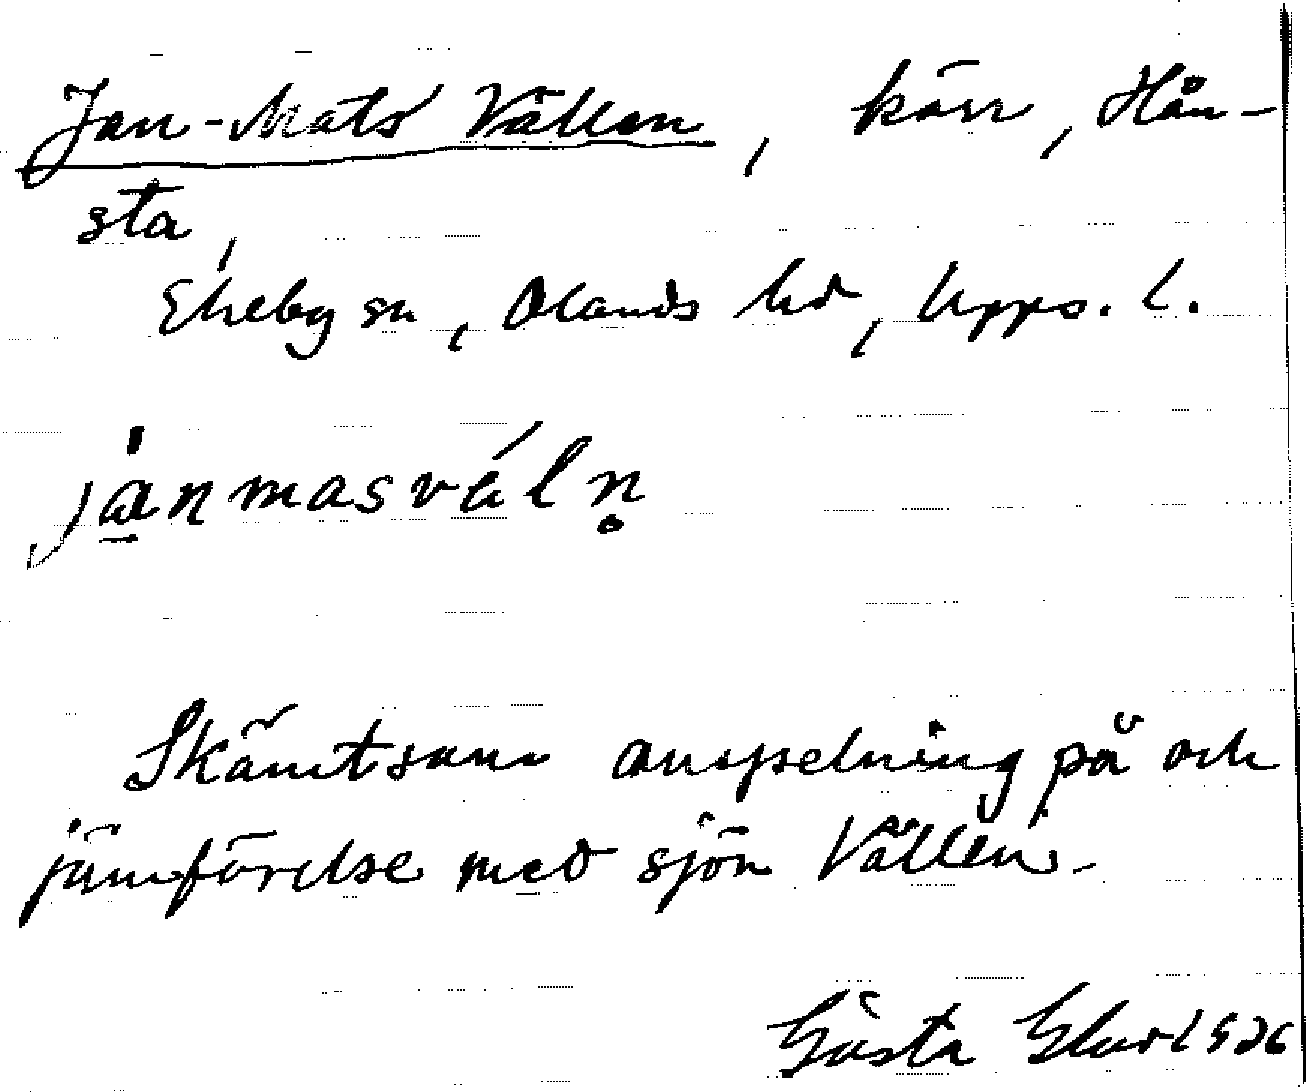 Jan-Mats Vällen, kärr, Hån-
sta,
Ekeby sn, Olands hd, Upps. l.
jänmasvéln̥
Skämtsam anspelning på och
jämförelse med sjön Vällen.
Gösta 1926